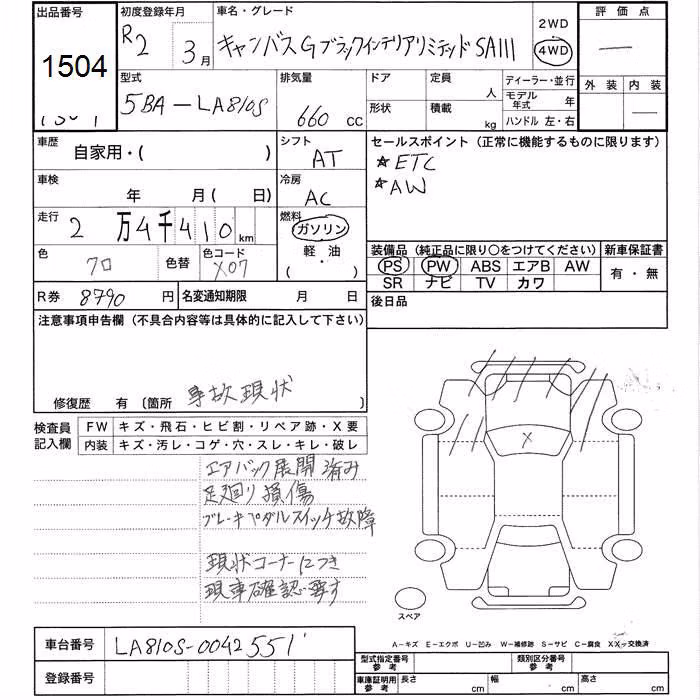 出品番号 初度登録年月 車名・グレード 2WD 評価点
1504 R2 3月 キャンバスGブラックインテリアリミテッド SAIII 4WD —
外装 内装
型式 排気量 ドア 定員 人 ディーラー・並行
5BA-LA810S 660 cc 形状 積載 kg モデル年式 年
ハンドル 左・右 —
車歴 自家用・( ) シフト AT セールスポイント(正常に機能するものに限ります)
☆ETC
車検 年 月( 日) 冷房 AC ☆AW
走行 2万4千410km 燃料 ガソリン
軽・油
( )
色 クロ 色替 色コード X07
装備品(純正品に限り○をつけてください) 新車保証書
PS PW ABS エアB AW 有・無
SR ナビ TV カワ
R券 8790円 名変通知期限 月 日 後日品
注意事項申告欄(不具合内容等は具体的に記入して下さい)
修復歴 有(箇所 事故現状 )
検査員記入欄 FW キズ・飛石・ヒビ割・リペア跡・X要
内装 キズ・汚レ・コゲ・穴・スレ・キレ・破レ
エアバック展開済み
足廻り損傷
ブレーキペダルスイッチ故障
現状コーナーにつき
現車確認要す
X
スペア
A-キズ E-エクボ U-凹み W-補修跡 S-サビ C-腐食 XX-交換済
車台番号 LA810S-0042551
登録番号
型式指定番号 参考 類別区分番号 参考
車庫証明用 参考 長さ cm 幅 cm 高さ cm